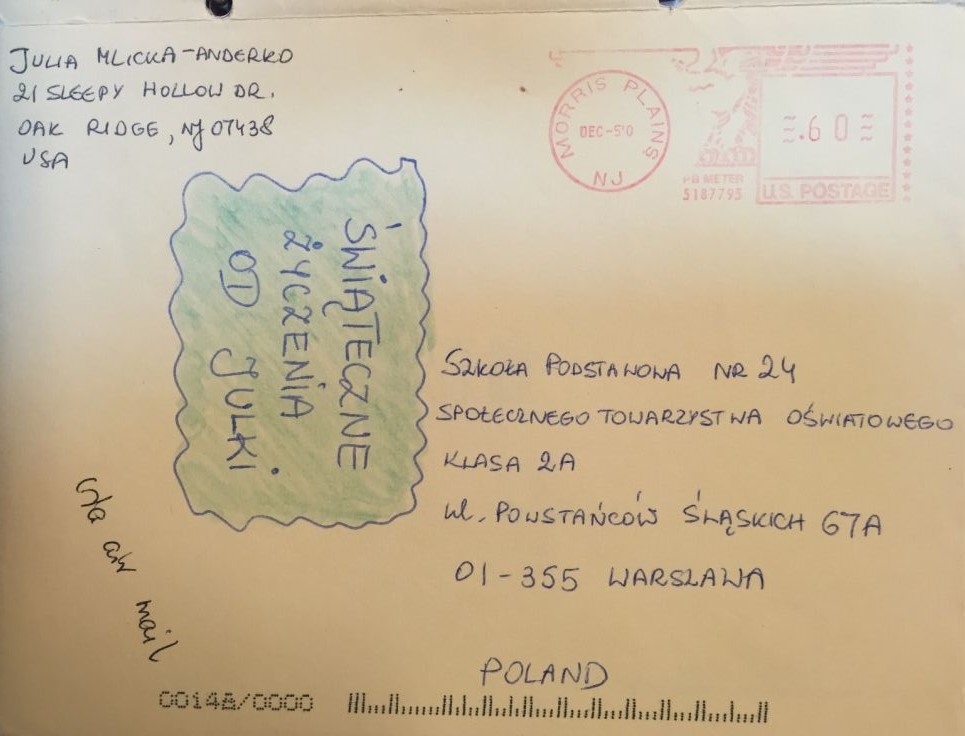 JULIA MLICKA-ANDERKO
21 SLEEPY HOLLOW DR.
OAK RIDGE, NJ 07438
USA
MORRIS PLAINS
DEC-5'0
NJ
PB METER
5187795
.60
U.S. POSTAGE
ŚWIĄTECZNE
ŻYCZENIA
OD
JULKI
SZKOŁA PODSTAWOWA NR 24
SPOŁECZNEGO TOWARZYSTWA OŚWIATOWEGO
KLASA 2A
ul. POWSTAŃCÓW ŚLĄSKICH 67A
01-355 WARSZAWA
POLAND
via air mail
00148/0000